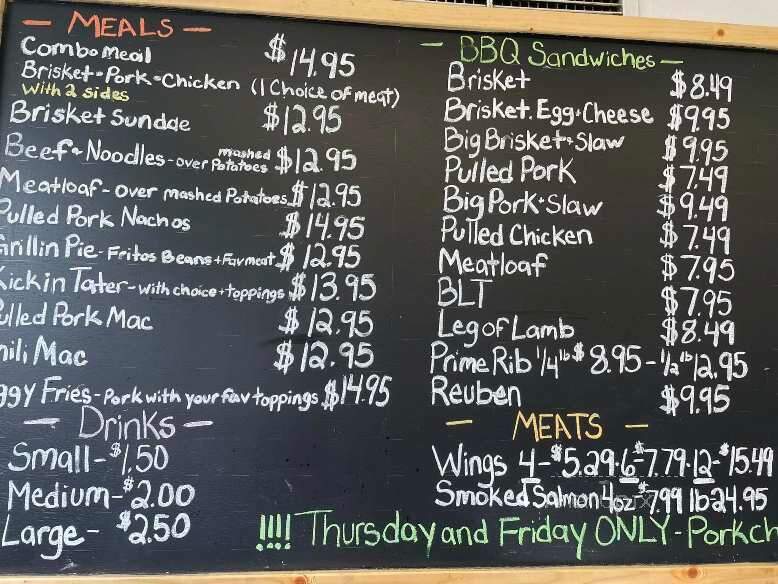 — MEALS —
Combo Meal $14.95
Brisket-Pork-Chicken (1 Choice of meat)
With 2 sides
Brisket Sundae $12.95
Beef & Noodles - over mashed Potatoes $12.95
Meatloaf - over mashed Potatoes $12.95
Pulled Pork Nachos $14.95
rillin Pie - Fritos Beans + Fav meat $12.95
Kickin Tater - with choice + toppings $13.95
ulled Pork Mac $12.95
hili Mac $12.95
ggy Fries - Pork with your fav toppings $14.95
— Drinks —
Small - $1.50
Medium - $2.00
Large - $2.50
— BBQ Sandwiches —
Brisket $8.49
Brisket. Egg + Cheese $9.95
Big Brisket + Slaw $9.95
Pulled Pork $7.49
Big Pork + Slaw $9.49
Pulled Chicken $7.49
Meatloaf $7.95
BLT $7.95
Leg of Lamb $8.49
Prime Rib 1/4 lb $8.95 - 1/2 lb 12.95
Reuben $9.95
— MEATS —
Wings 4 - $5.29 - 6 - $7.79 - 12 - $15.49
Smoked Salmon 4oz $7.99 lb 24.95
!!!! Thursday and Friday ONLY - Porkch